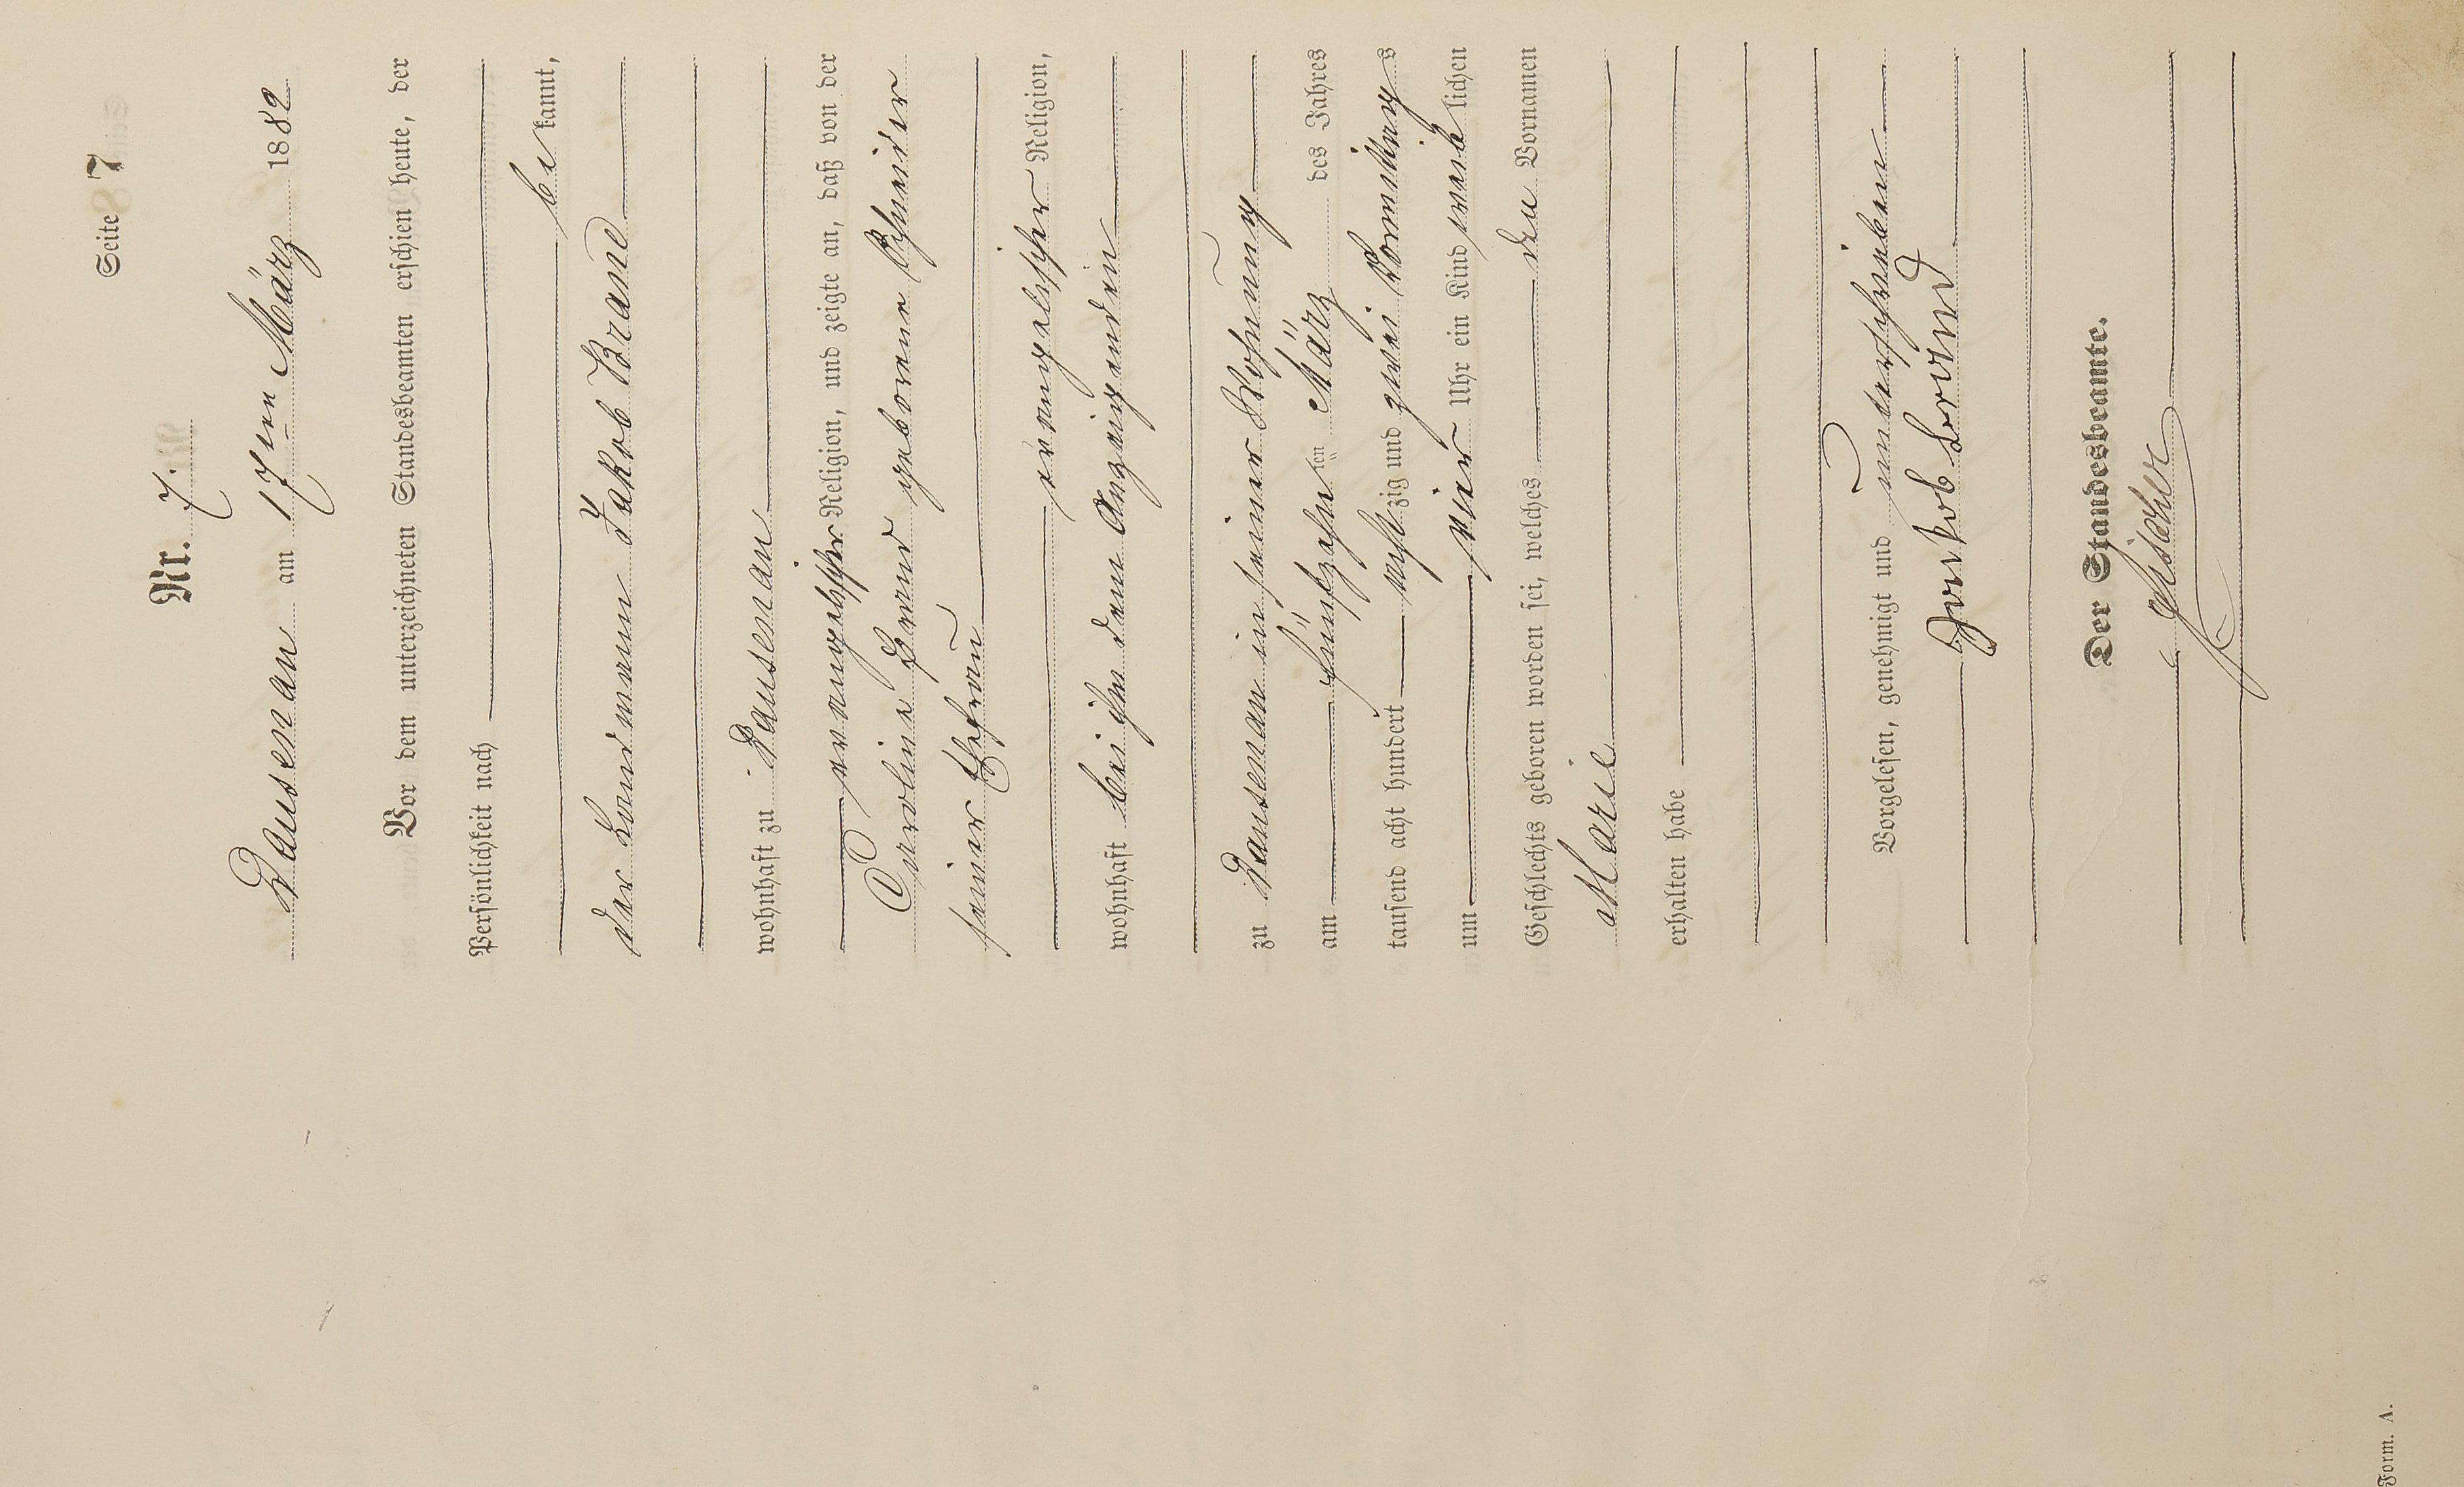 Seite 7
Nr. 7.
Dausenau am 17ten März 1882
Vor dem unterzeichneten Standesbeamten erschien heute, der
Persönlichkeit nach
be kannt,
der Landmann Jakob Brand
wohnhaft zu Dausenau
evangelischer Religion, und zeigte an, daß von der
Caroline Brand geborene Schneider
seiner Ehefrau
evangelischer Religion,
wohnhaft bei ihm dem Anzeigenden
zu Dausenau in seiner Wohnung
am fünfzehn ten März des Jahres
tausend acht hundert acht zig und zwei Vormittags
um vier Uhr ein Kind weib lichen
Geschlechts geboren worden sei, welches den Vornamen
Marie
erhalten habe
Vorgelesen, genehmigt und unterschrieben
Jakob Brand
Der Standesbeamte.
Form. A.